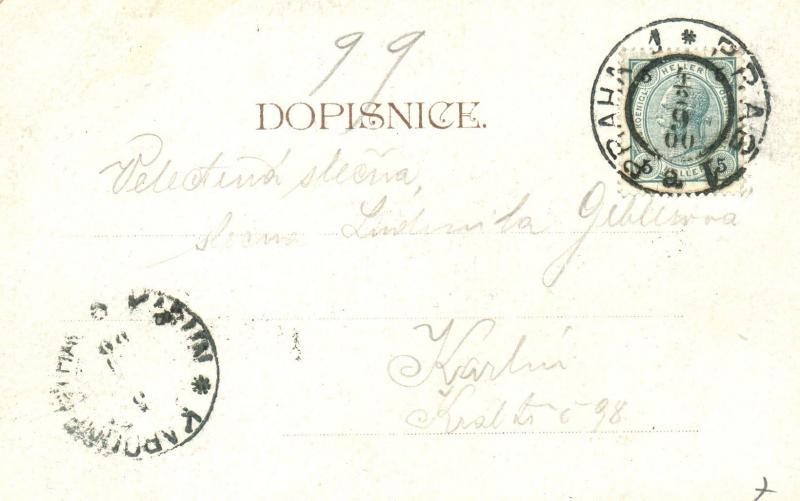 99
DOPISNICE.
PRAHA 1 * PRAG 1
4 9 00
HELLER
5 5
Velectěná slečna,
slečna Ludmila
Karlín
č 98
KARLIN * KAROLINENTHAL